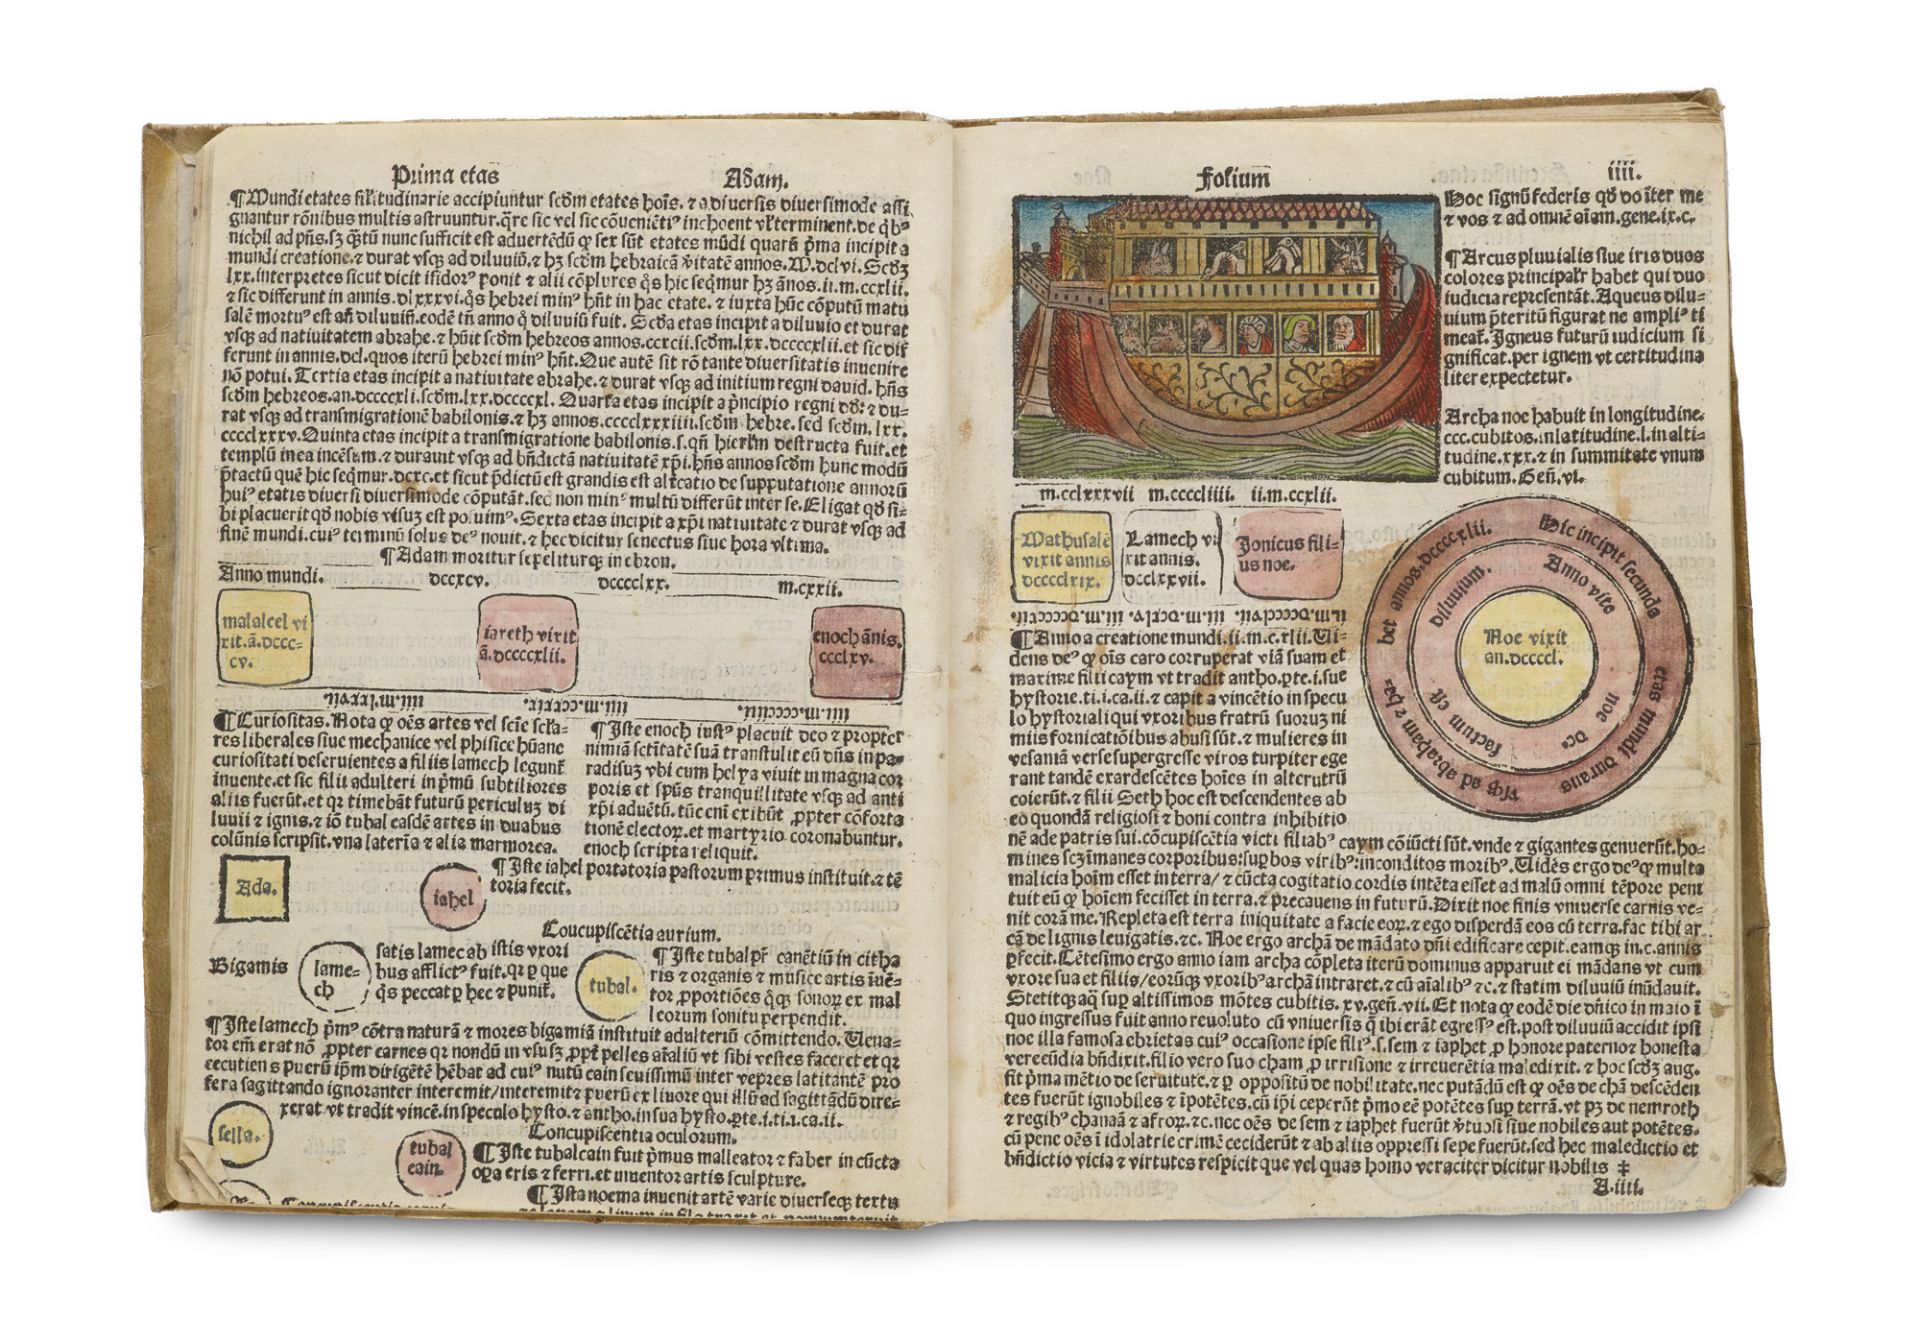 Prima etas Adam.
¶ Mundi etates silitudinarie accipiuntur scdm etates hoīs. ⁊ a diuersis diuersimode assi
gnantur rōnibus multis astruuntur. qre sic vel sic cōueniētiꝰ inchoent vl' terminent. de qbꝰ
nichil ad pñs. sꝫ qtū nunc sufficit est aduertēdū ꝙ sex sūt etates mūdi quarū pma incipit a
mundi creatione. ⁊ durat vsqꝫ ad diluuiū. ⁊ hꝫ scdm hebraicā vitatē annos. M.dclvi. Scdꝫ
lxx. interpretes sicut dicit isidorꝰ ponit ⁊ alii cōplures qs hic seqmur hꝫ ānos. ii.m.ccxlii.
⁊ sic differunt in annis. dlxxxvi. qs hebrei minꝰ hñt in hac etate. ⁊ iuxta hūc cōputū matu
salē mortuꝰ est añ diluuiū. eodē tñ anno q̊ diluuiū fuit. Scda etas incipit a diluuio et durat
vsqꝫ ad natiuitatem abrahe. ⁊ hñit scdm hebreos annos. ccxcii. scdm. lxx. dccccxlii. et sic dif
ferunt in annis. dcl. quos iterū hebrei minꝰ hñt. Que autē sit rō tante diuersitatis inuenire
nō potui. Tertia etas incipit a natiuitate abrahe. ⁊ durat vsqꝫ ad initium regni dauid. hñs
scdm hebreos. an. dccccxli. scdm. lxx. dccccxl. Quarta etas incipit a pncipio regni dd: ⁊ du-
rat vsqꝫ ad transmigrationē babilonis. ⁊ hꝫ annos. cccclxxxiiii. scdm hebre. sed scdm. lxx.
cccclxxxv. Quinta etas incipit a transmigratione babilonis. s. qñ hierlm destructa fuit. et
templū in ea incēsum. ⁊ durauit vsqꝫ ad bñdictā natiuitatē xpi. hñs annos scdm hunc modū
ptactū quē hic seqmur. dcxc. et sicut pdictū est grandis est altcatio de supputatione annorū
huiꝰ etatis diuersi diuersimode cōputāt. sed non minꝰ multū differūt inter se. Eligat qd si-
bi placuerit qd nobis visuꝫ est posuimꝰ. Sexta etas incipit a xpi natiuitate ⁊ durat vsqꝫ ad
finē mundi. cuiꝰ terminū solus deꝰ nouit. ⁊ hec dicitur senectus siue hora vltima.
¶ Adam moritur sepeliturqꝫ in ebron.
Anno mundi. dccxcv. dcccclxx. m.cxxii.
malaleel vi
xit. ā. dccc-
cv.
iareth vixit
ā. dccccxlii.
enoch ānis.
ccclxv.
¶ Curiositas. Nota ꝙ oēs artes vel sciē scla-
res liberales siue mechanice vel phisice hūane
curiositati deseruientes a filiis lamech legunt
inuente. et sic filii adulteri in pmū subtiliores
aliis fuerūt. et qr timebāt futurū periculuꝫ di
luuii ⁊ ignis. ⁊ iō tubal easdē artes in duabus
colūnis scripsit. vna lateria ⁊ alia marmorea.
¶ Iste enoch iustꝰ placuit deo ⁊ propter
nimiā sctitatē suā transtulit eū dñs in pa-
radisuꝫ vbi cum helya viuit in magna cor
poris et spūs tranquillitate vsqꝫ ad anti
xpi aduētū. tūc eni exibūt ꝓpter cōforta
tionē electoꝝ. et martyrio coronabuntur.
enoch scripta reliquit.
Ada.
iahel
¶ Iste iahel portatoria pastorum primus instituit. ⁊ tē
toria fecit.
Cōcupiscētia aurium.
Bigamis
lame-
ch
satis lamec ab istis vxori
bus afflictꝰ fuit. qr p que
qs peccat p hec ⁊ punit.
tubal.
¶ Iste tubal pr canētiū in citha
ris ⁊ organis ⁊ musice artis iuē-
tor ꝓportiōes qqꝫ sonoꝝ ex mal
leorum sonitu perpendit.
¶ Iste lamech pmꝰ cōtra naturā ⁊ mores bigamiā instituit adulteriū cōmittendo. Uena-
tor em erat nō ꝓpter carnes qr nondū in vsu suꝫ ꝓpt pelles aīaliū vt sibi vestes faceret et qr
cecutiens puerū ipm dirigētē hēbat ad cuiꝰ nutū cain seuissimū inter vepres latitantē pro
fera sagittando ignoranter interemit/interemit ⁊ puerū ex liuore qui illū ad sagittādū dire-
xerat vt tradit vincē. in speculo hysto. ⁊ antho. in sua hysto. pte. i. ti. i. ca. ii.
sella.
Concupiscentia oculorum.
tubal
cain.
¶ Iste tubalcain fuit pmus malleator ⁊ faber in cūcta
opa eris ⁊ ferri. et inuentor artis sculpture.
¶ Ista noema inuenit artē varie diuerseqꝫ textu
Folium iiii.
Hoc signū federis qd do īter me
⁊ vos ⁊ ad omnē aīam. gene. ix. c.
¶ Arcus pluuialis siue iris duos
colores principalr habet qui duo
iudicia representāt. Aqueus dilu-
uium pteritū figurat ne ampliꝰ ti
meat. Igneus futurū iudicium si
gnificat. per ignem vt certitudina
liter expectetur.
Archa noe habuit in longitudine.
ccc. cubitos. in latitudine. l. in alti-
tudine. xxx. ⁊ in summitate vnum
cubitum. Gen. vi.
m.cclxxxvii m.ccccliiii. ii.m.ccxlii.
Mathusalē
vixit annis
dcccclxix.
Lamech vi
xit annis.
dcclxxvii.
Ionicus fili-
us noe.
Hic incipit secunda etas mundi durans vsqꝫ ad abraham ⁊ ha-
bet annos. dccccxlii.
Anno vite noe dcꝰ factum est diluuium.
Noe vixit
an. dccccl.
¶ Anno a creatione mundi. ii.m.c.xlii. Ui-
dens deꝰ ꝙ oīs caro corruperat viā suam et
maxime filii caym vt tradit antho. pte. i. sue
hystorie. ti. i. ca. ii. ⁊ capit a vincētio in specu
lo hystoriali qui vxoribus fratrū suoruꝫ ni
miis fornicatiōibus abusi sūt. ⁊ mulieres in
vesaniā verse supergresse viros turpiter ege
rant tandē exardescētes hoīes in alterutrū
coierūt. ⁊ filii Seth hoc est descendentes ab
eo quondā religiosi ⁊ boni contra inhibitio
nē ade patris sui. cōcupiscētia victi filiabꝰ caym cōiūcti sūt. vnde ⁊ gigantes genuerūt. ho-
mines scꝫ īmanes corporibus: supbos viribꝰ: inconditos moribꝰ. Uidēs ergo deꝰ ꝙ multa
malicia hoīm esset in terra/ ⁊ cūcta cogitatio cordis intēta esset ad malū omni tēpore peni
tuit eū ꝙ hoīem fecisset in terra. ⁊ precauens in futurū. Dixit noe finis vniuerse carnis ve-
nit corā me. Repleta est terra iniquitate a facie eoꝝ. ⁊ ego disperdā eos cū terra. fac tibi ar
cā de lignis leuigatis. ⁊c. Noe ergo archā de mādato dñi edificare cepit. eamqꝫ in. c. annis
pfecit. Cētesimo ergo anno iam archa cōpleta iterū dominus apparuit ei mādans vt cum
vxore sua et filiis/eorūqꝫ vxoribꝰ archā intraret. ⁊ cū aīalibꝰ ⁊c. ⁊ statim diluuiū inūdauit.
Stetitqꝫ aq̄ sup altissimos mōtes cubitis. xv. gen. vii. Et nota ꝙ eodē die dñico in maio ī
quo ingressus fuit anno reuoluto cū vniuersis q ibi erāt egressꝰ est. post diluuiū accidit ipsi
noe illa famosa ebrietas cuiꝰ occasione ipse filiꝰ. s. sem ⁊ iaphet ꝓ honore paterno ⁊ honesta
verecūdia bñdixit. filio vero suo cham ꝓ irrisione ⁊ irreuerētia maledixit. ⁊ hoc scdꝫ aug.
fit pma mētio de seruitute. ⁊ p oppositū de nobilitate. nec putādū est ꝙ oēs de chā descēden
tes fuerūt ignobiles ⁊ īpotētes. cū ipi ceperūt pmo eē potētes sup terrā. vt pꝫ de nemroth
⁊ regibꝰ chanaā ⁊ afroꝝ. ⁊c. nec oēs de sem ⁊ iaphet fuerūt vtuosi siue nobiles aut potētes.
cū pene oēs ī idolatrie crimē ceciderūt ⁊ ab aliis oppressi sepe fuerūt. sed hec maledictio et
bñdictio vicia ⁊ virtutes respicit que vel quas homo veraciter dicitur nobilis ‡
A.iiii.